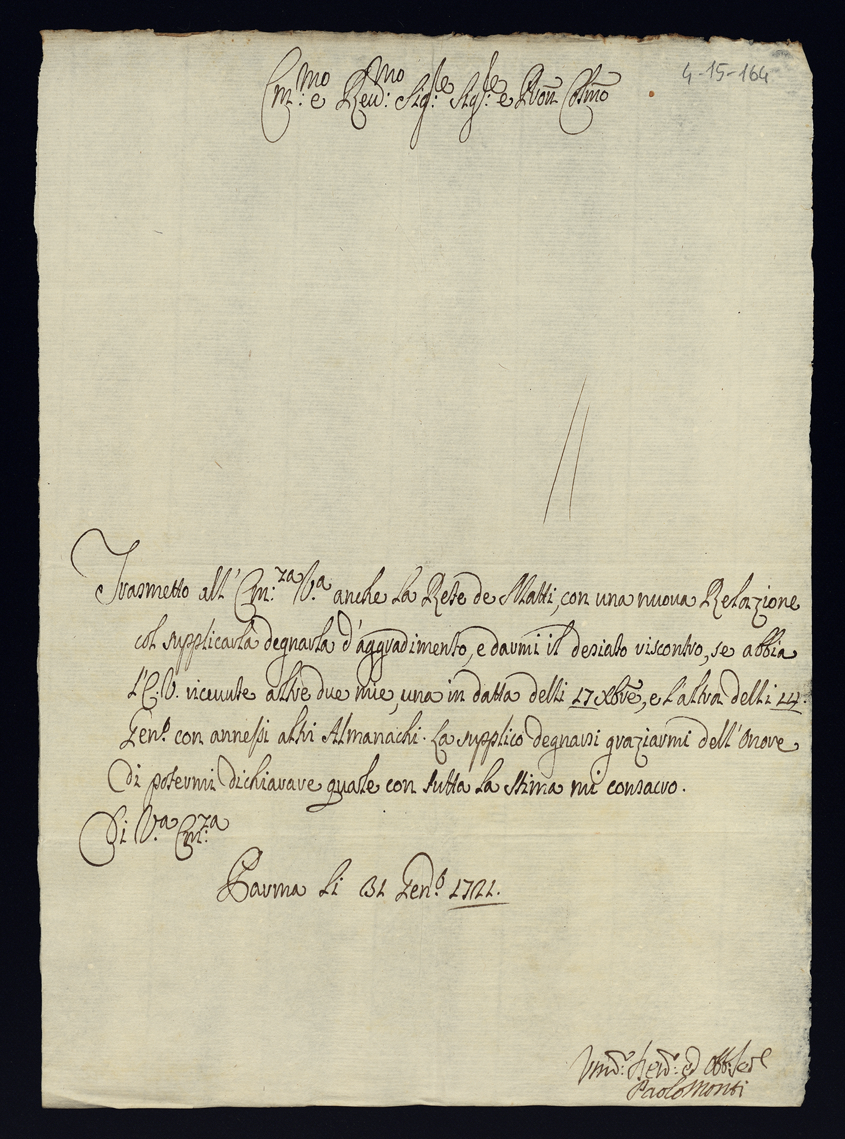 4-15-164
Em:mo e Rev:mo Sig:re Sig:re e Pron Colmo
Trasmetto all' Em:za V.a anche la Rete de Matti, con una nuova Relazione
col supplicarla degnarla d'aggradimento, e darmi il desiato riscontro, se abbia
l'E.V. ricevute altre due mie, una in datta delli 17 Xbre, e l'altra delli 14.
Gen.o con annessi altri Almanachi. La supplico degnarsi graziarmi dell'onore
di potermi dichiarare quale con tutta la stima mi consacro.
Di V.a Em:za
Parma li 31 Gen.o 1721.
Um:o Dev:o ed Obb: Ser.e
Paolo Monti